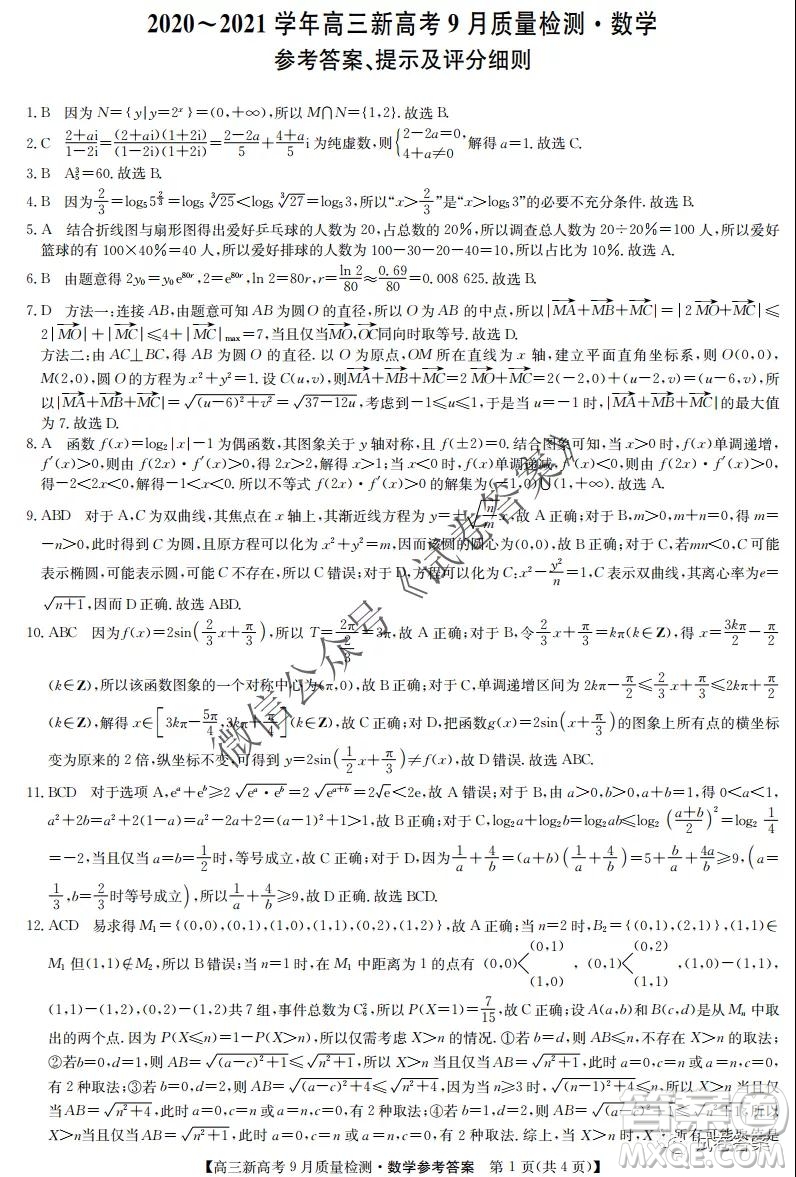 2020～2021 学年高三新高考 9 月质量检测·数学
参考答案、提示及评分细则
1. B 因为 N={ y|y=2ˣ }=(0,+∞),所以 M∩N={1,2}.故选 B.
2. C (2+ai)/(1-2i)=(2+ai)(1+2i)/(1-2i)(1+2i)=(2-2a)/5+(4+a)/5 i 为纯虚数,则{2-2a=0, 4+a≠0 解得 a=1.故选 C.
3. B A₅³=60.故选 B.
4. B 因为 2/3=log₅5^(2/3)=log₅∛25<log₅∛27=log₅3,所以“x>2/3”是“x>log₅3”的必要不充分条件.故选 B.
5. A 结合折线图与扇形图得出爱好乒乓球的人数为 20,占总数的 20%,所以调查总人数为 20÷20%=100 人,所以爱好
篮球的有 100×40%=40 人,所以爱好排球的人数为 100-30-20-40=10,所以占比为 10%.故选 A.
6. B 由题意得 2y₀=y₀e^(80r),2=e^(80r),ln 2=80r,r=ln 2/80≈0.69/80=0.008 625.故选 B.
7. D 方法一:连接 AB,由题意可知 AB 为圆 O 的直径,所以 O 为 AB 的中点,所以|MA+MB+MC|=|2 MO+MC|≤
2|MO|+|MC|≤4+|MC|max=7,当且仅当MO,OC同向时取等号.故选 D.
方法二:由 AC⊥BC,得 AB 为圆 O 的直径.以 O 为原点,OM 所在直线为 x 轴,建立平面直角坐标系,则 O(0,0),
M(2,0),圆 O 的方程为 x²+y²=1.设 C(u,v),则MA+MB+MC=2 MO+MC=2(-2,0)+(u-2,v)=(u-6,v),所
以|MA+MB+MC|=√((u-6)²+v²)=√(37-12u),考虑到-1≤u≤1,于是当 u=-1 时,|MA+MB+MC|的最大值
为 7.故选 D.
8. A 函数 f(x)=log₂|x|-1 为偶函数,其图象关于 y 轴对称,且 f(±2)=0.结合图象可知,当 x>0 时,f(x)单调递增,
f′(x)>0,则由 f(2x)·f′(x)>0,得 2x>2,解得 x>1;当 x<0 时,f(x)单调递减,f′(x)<0,则由 f(2x)·f′(x)>0,
得-2<2x<0,解得-1<x<0.所以不等式 f(2x)·f′(x)>0 的解集为(-1,0)∪(1,+∞).故选 A.
9. ABD 对于 A,C 为双曲线,其焦点在 x 轴上,其渐近线方程为 y=±√(-n/m)x,故 A 正确;对于 B,m>0,m+n=0,得 m=
-n>0,此时得到 C 为圆,且原方程可以化为 x²+y²=m,因而该圆的圆心为(0,0),故 B 正确;对于 C,若mn<0,C 可能
表示椭圆,可能表示圆,可能 C 不存在,所以 C 错误;对于 D,方程可以化为 C:x²-y²/n=1,C 表示双曲线,其离心率为e=
√(n+1),因而 D 正确.故选 ABD.
10. ABC 因为 f(x)=2sin(2/3 x+π/3),所以 T=2π/(2/3)=3π,故 A 正确;对于 B,令 2/3 x+π/3=kπ(k∈Z),得 x=3kπ/2-π/2
(k∈Z),所以该函数图象的一个对称中心为(π,0),故 B 正确;对于 C,单调递增区间为 2kπ-π/2≤2/3 x+π/3≤2kπ+π/2
(k∈Z),解得 x∈[3kπ-5π/4,3kπ+π/4](k∈Z),故 C 正确;对于 D,把函数 g(x)=2sin(x+π/3)的图象上所有点的横坐标
变为原来的 2 倍,纵坐标不变,可得到 y=2sin(1/2 x+π/3)≠f(x),故 D 错误.故选 ABC.
11. BCD 对于选项 A,eᵃ+eᵇ≥2√(eᵃ·eᵇ)=2√(e^(a+b))=2√e<2e,故 A 错误;对于 B,由 a>0,b>0,a+b=1,得 0<a<1,
a²+2b=a²+2(1-a)=a²-2a+2=(a-1)²+1>1,故 B 正确;对于 C,log₂a+log₂b=log₂ab≤log₂((a+b)/2)²=log₂ 1/4
=-2,当且仅当 a=b=1/2时,等号成立,故 C 正确;对于 D,因为1/a+4/b=(a+b)(1/a+4/b)=5+b/a+4a/b≥9,(a=
1/3,b=2/3时等号成立),所以1/a+4/b≥9,故 D 正确.故选 BCD.
12. ACD 易求得 M₁={(0,0),(0,1),(1,0),(1,1),(0,2),(1,2)},故 A 正确;当 n=2 时,B₂={(0,1),(2,1)},(1,1)∈
M₁ 但(1,1)∉M₂,所以 B 错误;当 n=1 时,在 M₁ 中距离为 1 的点有 (0,0)<(0,1) (1,0),(0,1)<(0,2) (1,1),(1,0)-(1,1),
(1,1)-(1,2),(0,2)-(1,2)共 7 组,事件总数为C₆²,所以 P(X=1)=7/15,故 C 正确;设 A(a,b)和 B(c,d)是从 Mₙ 中取
出的两个点.因为 P(X≤n)=1-P(X>n),所以仅需考虑 X>n 的情况.①若 b=d,则 AB≤n,不存在 X>n 的取法;
②若b=0,d=1,则 AB=√((a-c)²+1)≤√(n²+1),所以 X>n 当且仅当 AB=√(n²+1),此时 a=0,c=n 或 a=n,c=0,
有 2 种取法;③若 b=0,d=2,则 AB=√((a-c)²+4)≤√(n²+4),因为当 n≥3 时,√((n-1)²+4)≤n,所以 X>n 当且仅
当 AB=√(n²+4),此时 a=0,c=n 或 a=n,c=0,有 2 种取法;④若 b=1,d=2,则 AB=√((a-c)²+1)≤√(n²+1),所以
X>n 当且仅当 AB=√(n²+1),此时 a=0,c=n 或 a=n,c=0,有 2 种取法.综上,当 X>n 时,X 的所有可能取值是
【高三新高考 9 月质量检测·数学参考答案 第 1 页(共 4 页)】
微信公众号《试卷答案》
试卷答案